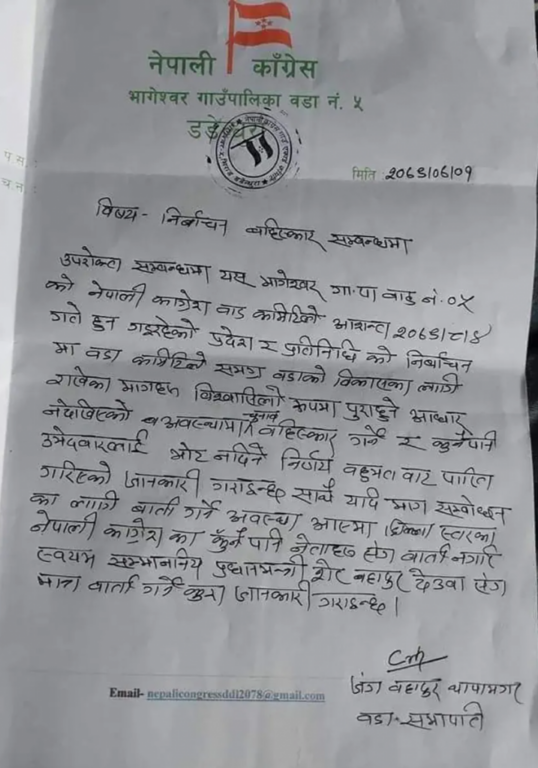 नेपाली काँग्रेस
भागेश्वर गाउँपालिका वडा नं. ५
डडे
प स
च न
मिति २०७९/०६/०१
विषय- निर्वाचन बहिस्कार सम्बन्धमा
उपरोक्त सम्बन्धमा यस भागेश्वर गा.पा वाड नं. ०५
को नेपाली काग्रेश वाड कमिटिले आशन्त २०७९/८/४
गते हुन गइरहेको प्रदेश र प्रतिनिधि को निर्वाचन
मा वडा कमिटिले समग्र वडाको विकासका लागी
राखेका मागहरु विश्वासिलो रुपमा पुराहुने आधार
नदेखिएको अवस्थामा चुनाव वहिस्कार गर्ने र कुनैपनि
उमेदवारलाई भोट नदिने निर्णय वहुमत वाट पारित
गरिएको जानकारी गराइन्छ साथै यदि माग सम्वोधन
का लागी बार्ता गर्ने अवस्था आएमा जिल्ला स्तरका
नेपाली काग्रेश का कुनै पनि नेताहरु संग वार्ता नगरि
स्वयम सम्मानानिय प्रधानमन्त्री शेर बहादुर देउवा संग
मात्र वार्ता गर्ने कुरा जानकारी गराइन्छ।
जंग वहादुर थापामगर
वडा-सभापति
Email- nepalicongressddl2078@gmail.com